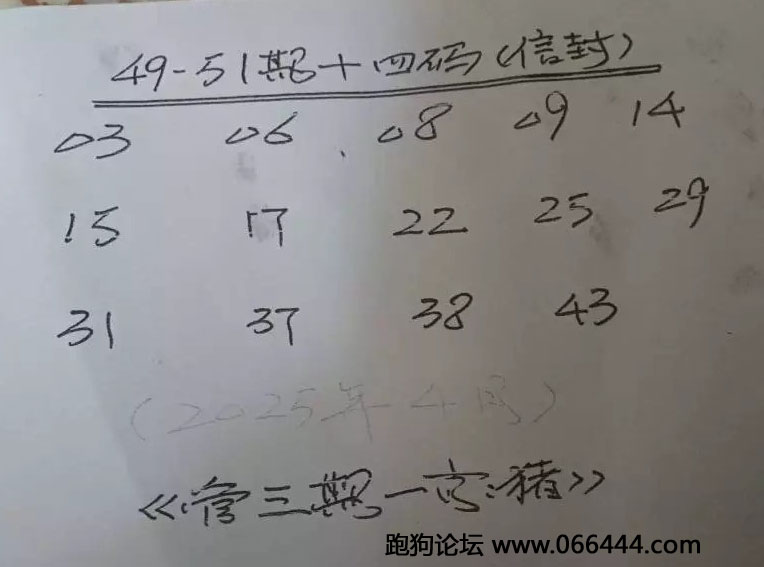 49-51期十四码(信封)
03 06 08 09 14
15 17 22 25 29
31 37 38 43
(2025年-4月)
《管三期一肖:猪》
跑狗论坛 www.066444.com